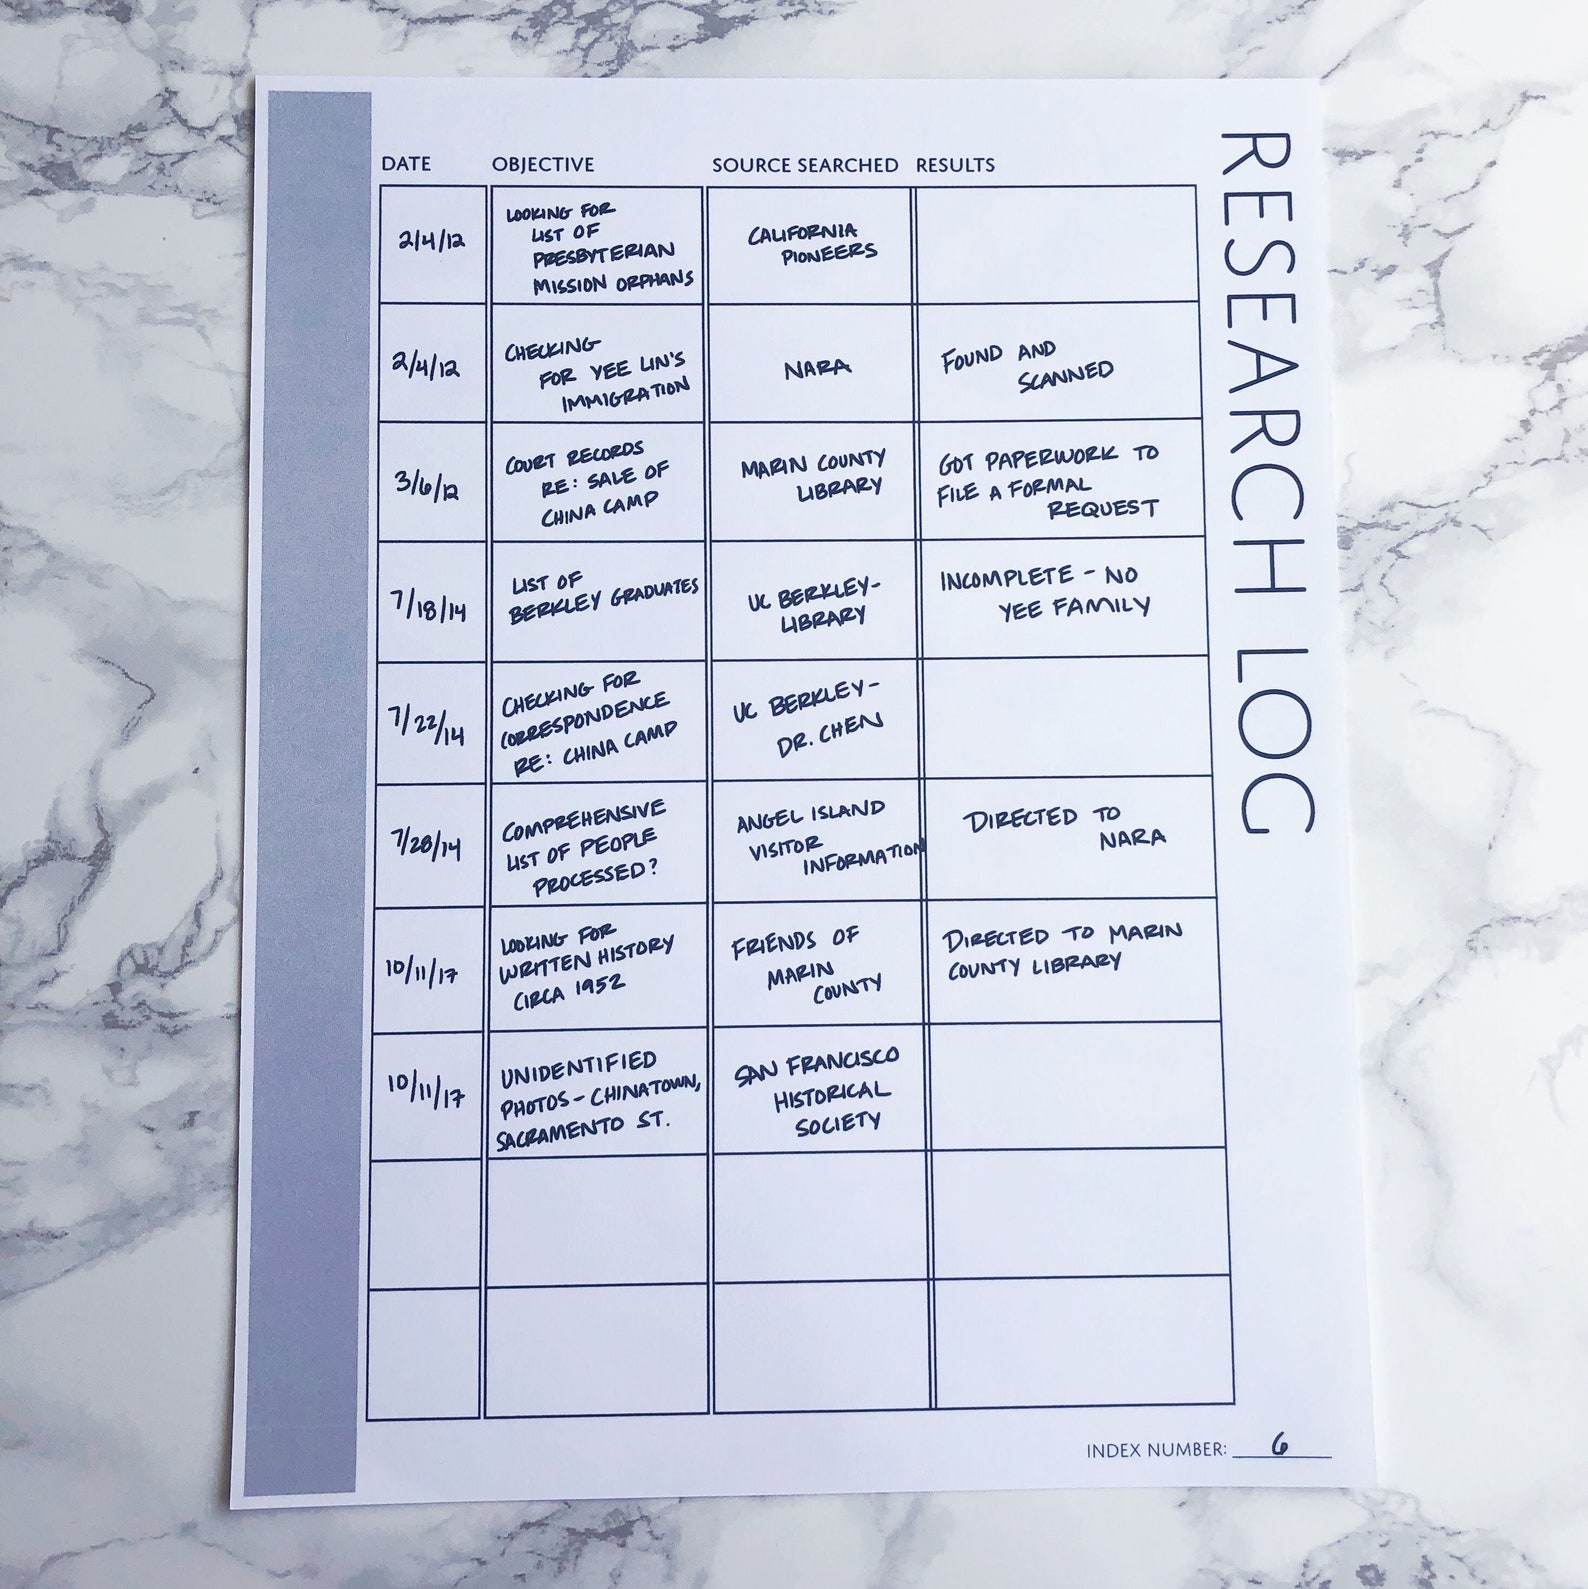 RESEARCH LOG
DATE OBJECTIVE SOURCE SEARCHED RESULTS
2/4/12
LOOKING FOR
LIST OF
PRESBYTERIAN
MISSION ORPHANS
CALIFORNIA
PIONEERS
2/4/12
CHECKING
FOR YEE LIN'S
IMMIGRATION
NARA
FOUND AND
SCANNED
3/6/12
COURT RECORDS
RE: SALE OF
CHINA CAMP
MARIN COUNTY
LIBRARY
GOT PAPERWORK TO
FILE A FORMAL
REQUEST
7/18/14
LIST OF
BERKLEY GRADUATES
UC BERKLEY-
LIBRARY
INCOMPLETE - NO
YEE FAMILY
7/22/14
CHECKING FOR
CORRESPONDENCE
RE: CHINA CAMP
UC BERKLEY-
DR. CHEN
7/28/14
COMPREHENSIVE
LIST OF PEOPLE
PROCESSED?
ANGEL ISLAND
VISITOR
INFORMATION
DIRECTED TO
NARA
10/11/17
LOOKING FOR
WRITTEN HISTORY
CIRCA 1952
FRIENDS OF
MARIN
COUNTY
DIRECTED TO MARIN
COUNTY LIBRARY
10/11/17
UNIDENTIFIED
PHOTOS - CHINATOWN,
SACRAMENTO ST.
SAN FRANCISCO
HISTORICAL
SOCIETY
INDEX NUMBER: 6